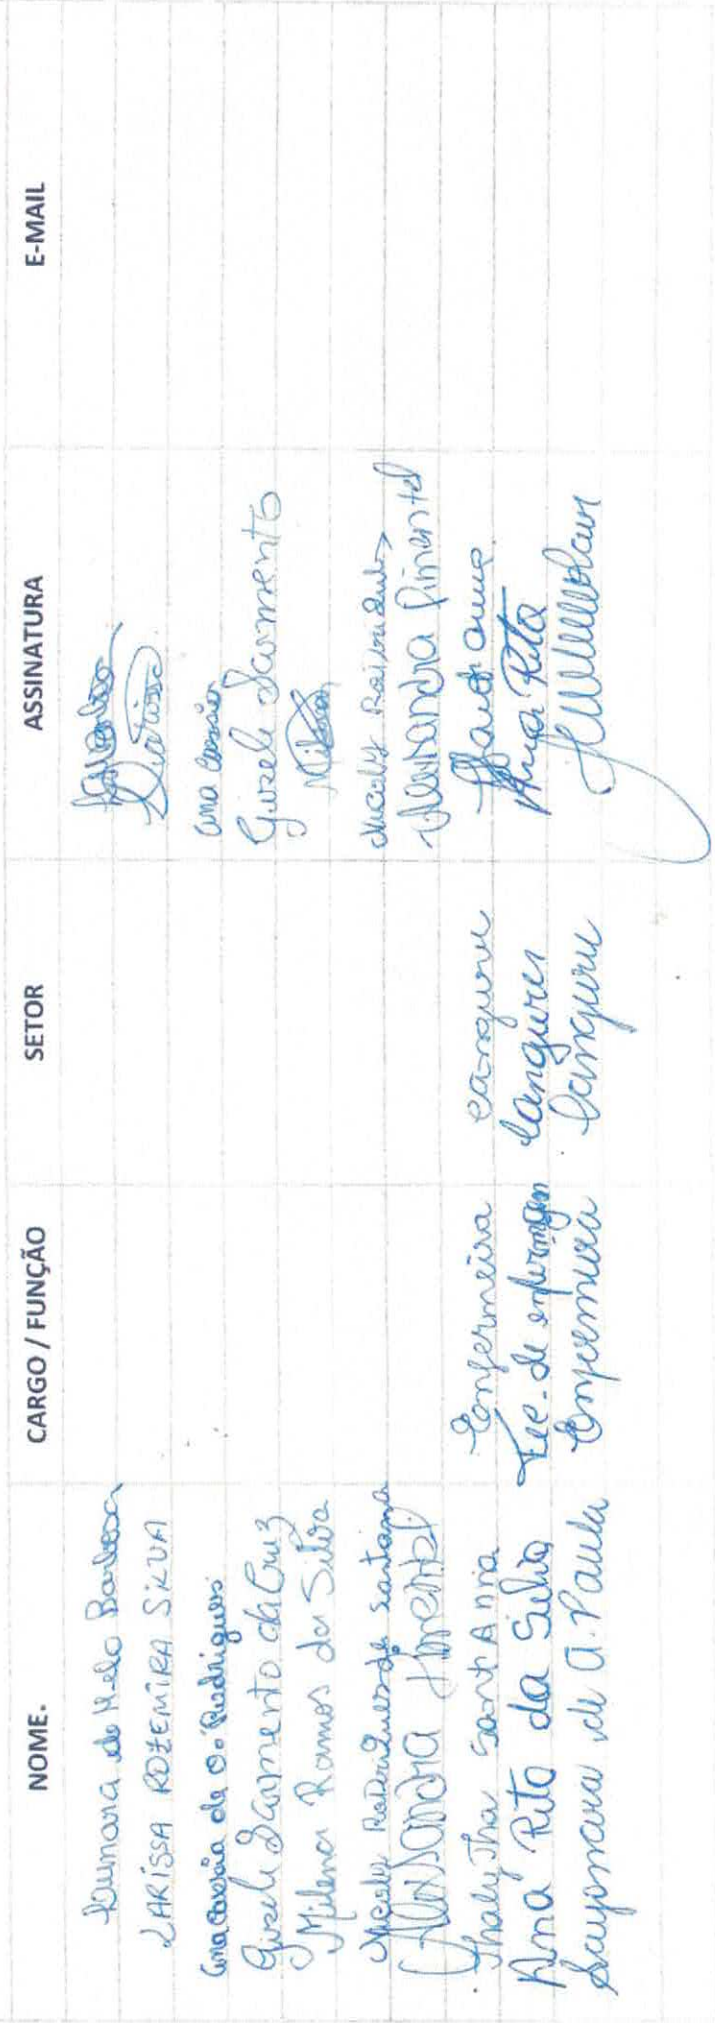 NOME. CARGO / FUNÇÃO SETOR ASSINATURA E-MAIL
de Melo Barbosa
LARISSA ROZEMIRA SILVA Larissa
Ana Cassia de O. Rodrigues Ana Cassia
Gisele Sarmento da Cruz Gisele Sarmento
Milena Ramos da Silva Milena
Nicoly Raimundo
Alessandra Pimentel Alessandra Pimentel
Thalytha Sant Anna Enfermeira canguru
Ana Rita da Silva Tec. de enfermagem Canguru Ana Rita
Sayonara de A. Paula Enfermeira Canguru